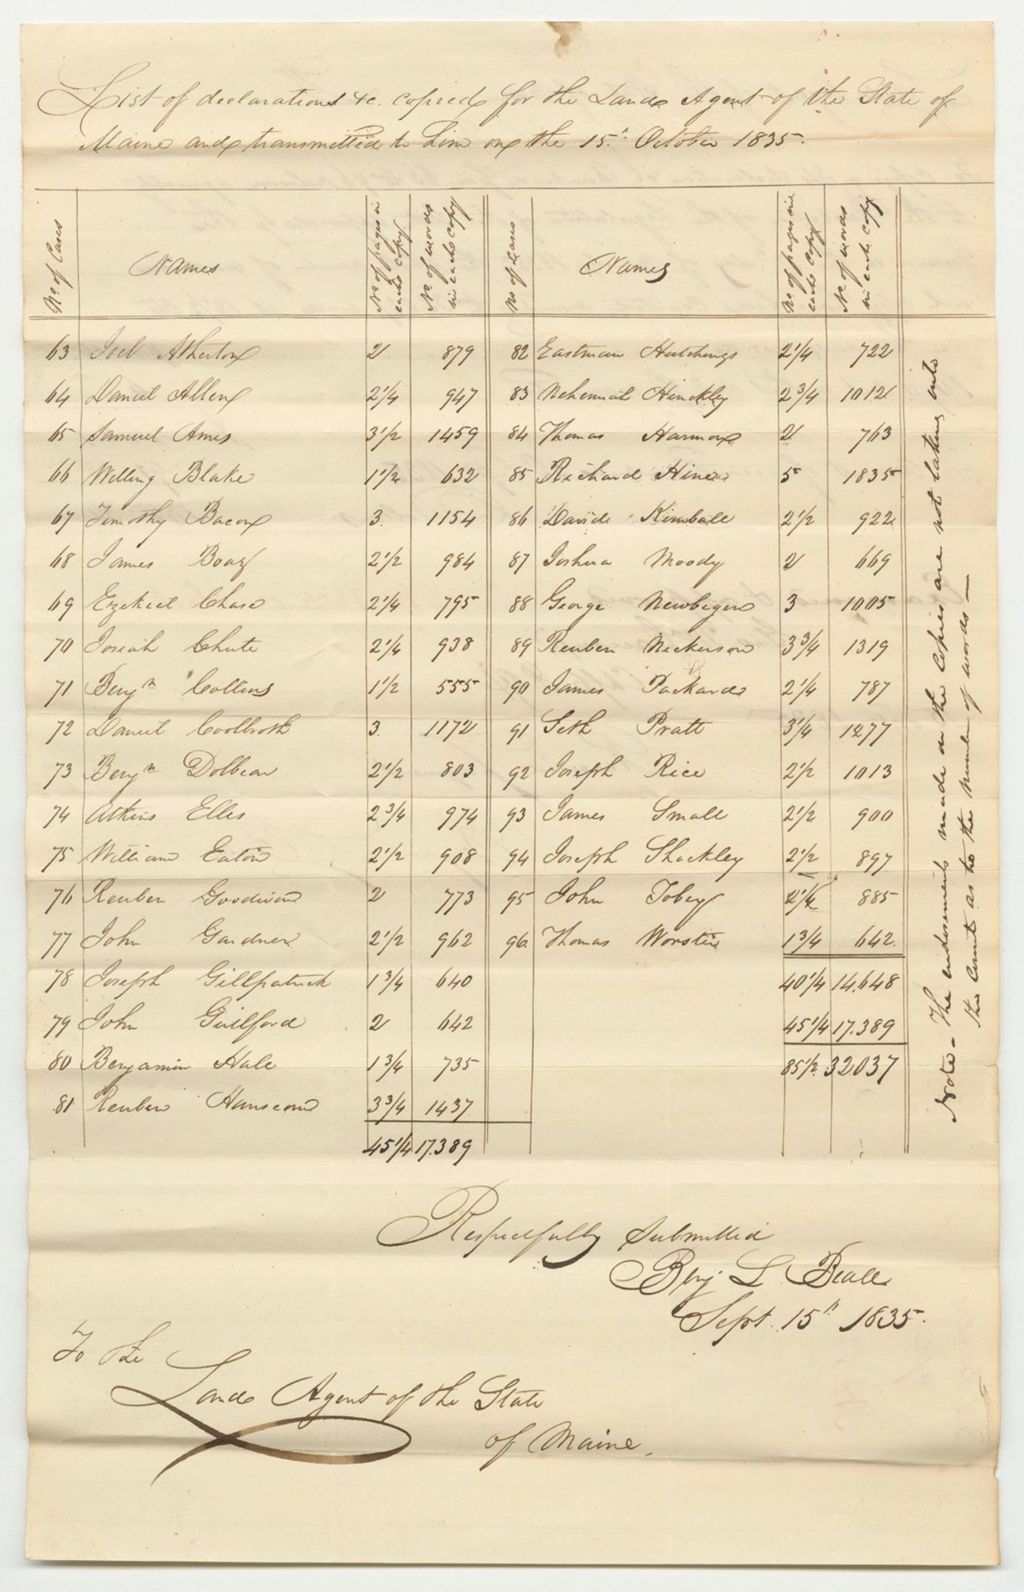 List of declarations &c. copied for the Land Agent of the State of
Maine and transmitted to him on the 15th October 1835.
No. of Cases | Names | No of pages in each copy | No of words in each copy | No of Cases | Names | No of pages in each copy | No of words in each copy
63 Joel Atherton 2 879 82 Eastman Hutchings 2 1/4 722
64 Daniel Allen 2 1/4 947 83 Nehemiah Hinckley 2 3/4 1012
65 Samuel Ames 3 1/2 1459 84 Thomas Harmon 2 763
66 Willing Blake 1 1/2 632 85 Richard Hines 5 1835
67 Timothy Bacon 3 1154 86 David Kimball 2 1/2 922
68 James Boaz 2 1/2 984 87 Joshua Moody 2 669
69 Ezekiel Chase 2 1/4 795 88 George Newbegin 3 1005
70 Josiah Chute 2 1/4 938 89 Reuben Nickerson 3 3/4 1319
71 Benjn Collins 1 1/2 555 90 James Packard 2 1/4 787
72 Daniel Coolbroth 3 1172 91 Seth Pratt 3 1/4 1277
73 Benjn Dolbear 2 1/2 803 92 Joseph Rice 2 1/2 1013
74 Atkins Elles 2 3/4 974 93 James Small 2 1/2 900
75 William Eaton 2 1/2 908 94 Joseph Shackley 2 1/2 897
76 Reuben Goodwin 2 773 95 John Tobey 2 1/4 885
77 John Gardner 2 1/2 962 96 Thomas Worster 1 3/4 642
78 Joseph Gillpatrick 1 3/4 640 40 1/4 14.648
79 John Guilford 2 642 45 1/4 17.389
80 Benjamin Hale 1 3/4 735 85 1/2 32037
81 Reuben Hanscom 3 3/4 1437
45 1/4 17.389
Note - The endorsements made on the copies are not taken into
the count as to the number of words —
Respectfully Submitted
Benj L. Beall
Sept. 15th 1835.
To the
Land Agent of the State
of Maine.